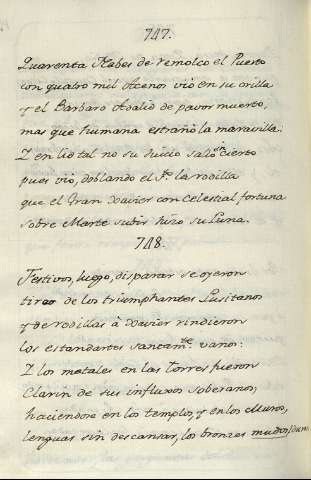 747.
Quarenta Naves de remolco el Puerto
con quatro mil Acenos vió en su orilla
y el Barbaro Adalid de pavor muerto,
mas que humana estrañó la maravilla:
Y en lid tal no su juicio salió cierto
pues vió, doblando el Jo. la rodilla
que el Gran Xavier con celestial fortuna
sobre Marte subir hizo su Luna.
748.
Festivos, luego, disparar se oyeron
tiros de los triumphantes Lusitanos
y de rodillas à Xavier rindieron
los estandartes santamte. vanos:
Y los metales en las Torres fueron
Clarin de sus influxos soberanos,
haciendose en los templos, y en los Muros,
lenguas sin descansar, los bronzes mudos